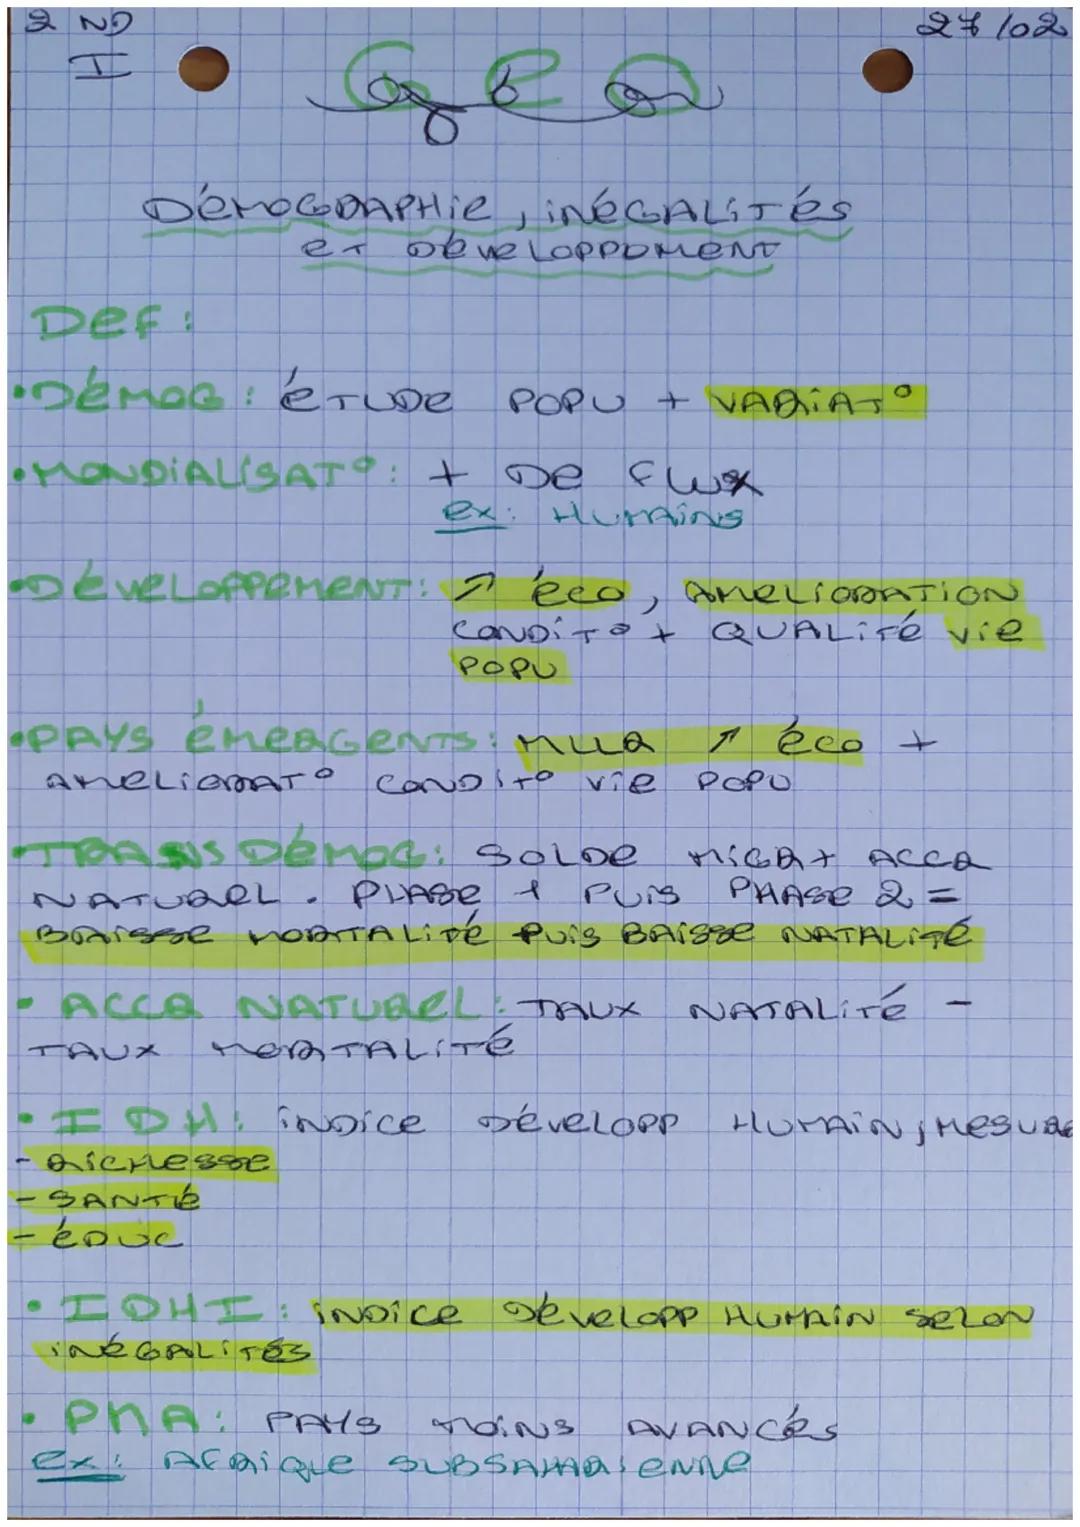 2ND 27/02
I
Géo
DÉMOGRAPHIE, INÉGALITÉS
ET DÉVELOPPEMENT
DEF :
• DÉMOG : ÉTUDE POPU + VARIAT°
• MONDIALISAT° : + DE FLUX
ex : HUMAINS
• DÉVELOPPEMENT : ↗ éco, AMELIORATION
CONDIT° + QUALITÉ VIE
POPU
• PAYS ÉMERGENTS : ↗ éco +
AMELIORAT° CONDIT° VIE POPU
• TRANS DÉMOG : SOLDE MIGR + ACCR
NATUREL . PHASE 1 PUIS PHASE 2 =
BAISSE MORTALITÉ PUIS BAISSE NATALITÉ
• ACCR NATUREL : TAUX NATALITÉ -
TAUX MORTALITÉ
• IDH : INDICE DÉVELOPP HUMAIN, MESURE
- RICHESSE
- SANTÉ
- ÉDUC
• IDHI : INDICE DÉVELOPP HUMAIN SELON
INÉGALITÉS
• PMA : PAYS MOINS AVANCÉS
ex : AFRIQUE SUBSAHARIENNE